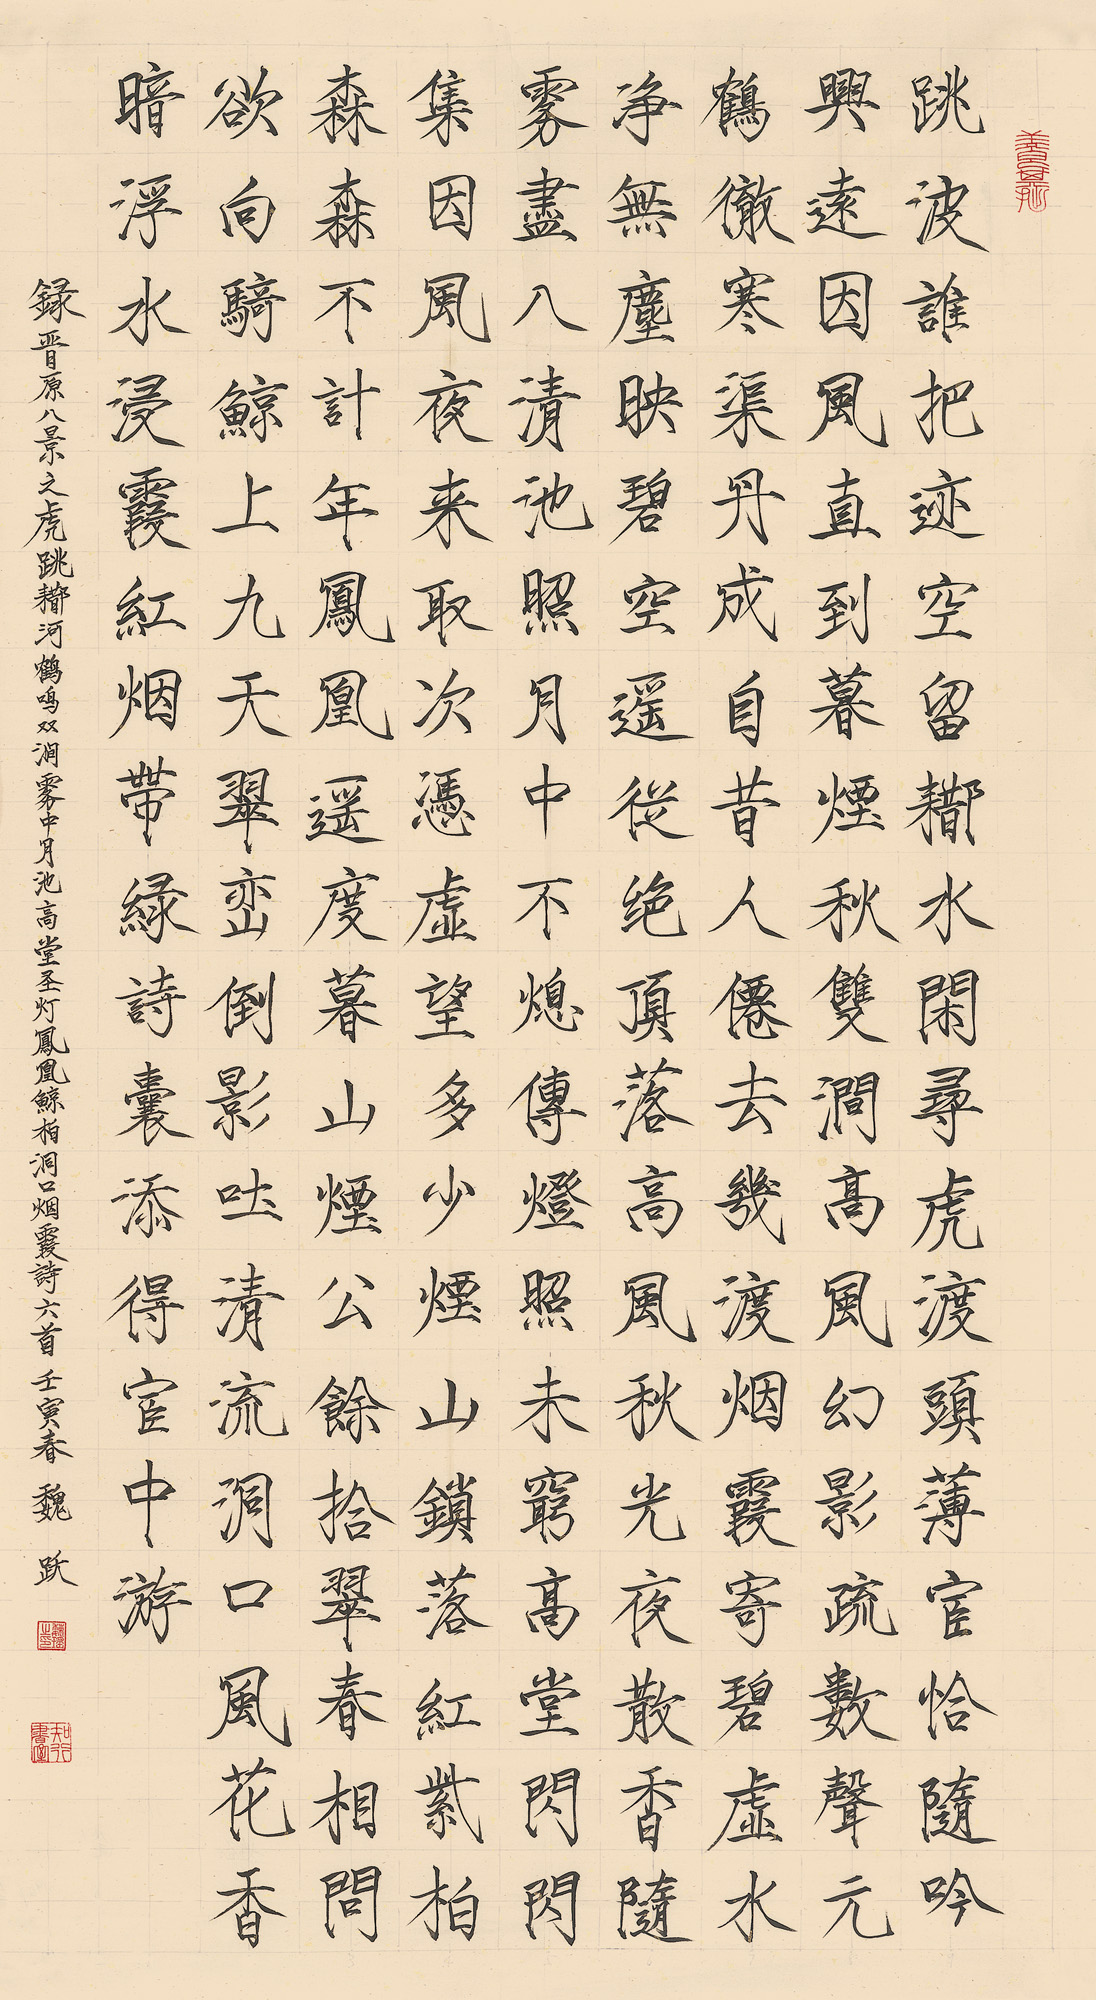 跳波誰把迹空留水閑尋虎渡頭薄宦恰隨吟
興遠因風直到暮煙秋雙澗高風幻影疏數聲元
鶴徹寒渠丹成自昔人僊去幾渡烟霞寄碧虛水
净無塵映碧空遥從绝頂落高風秋光夜散香隨
雾盡八清池照月中不熄傳燈照未窮高堂閃閃
集因風夜来取次憑虛望多少煙山鎖落紅紫柏
森森不計年鳳凰遥度暮山煙公餘拾翠春相問
欲向騎鯨上九天翠峦倒影吐清流洞口風花香
暗浮水浸霞紅烟帶緑詩囊添得宦中游
録晋原八景之虎跳河鶴鳴双澗雾中月池高堂圣灯鳳凰鯨柏洞口烟霞詩六首 壬寅春 魏跃